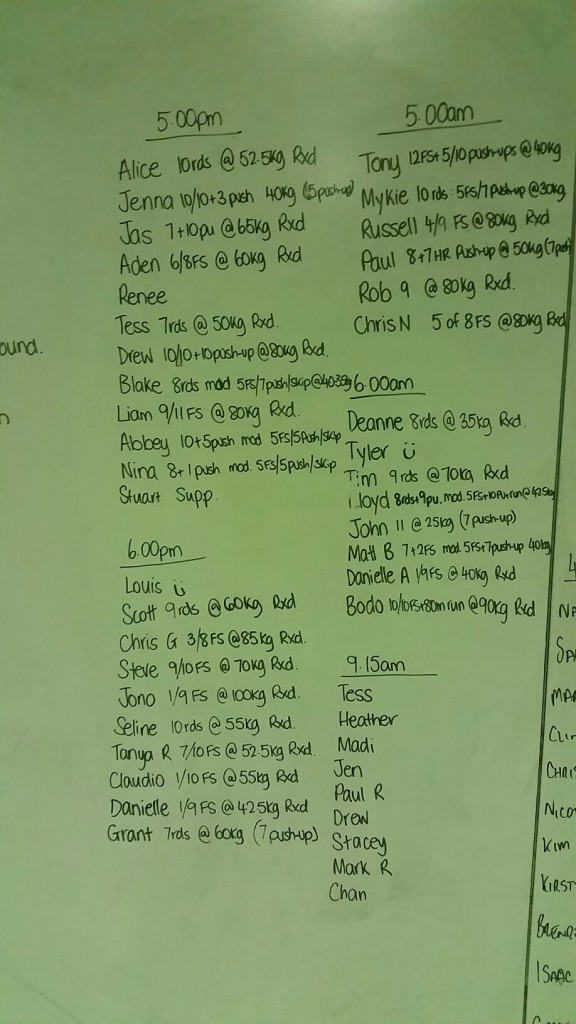 5.00pm
Alice 10rds @ 52.5kg Rxd
Jenna 10/10+3push 40kg (5pushup)
Jas 7+10pu @65kg Rxd
Aden 6/8FS @ 60kg Rxd
Renee
Tess 7rds @ 50kg Rxd.
Drew 10/10+10push-up @80kg Rxd.
Blake 8rds mod 5FS/7push/skip@40
Liam 9/11 FS @ 80kg Rxd.
Abbey 10+5push mod 5FS/5Push/skip
Nina 8+1push mod. 5FS/5push/skip
Stuart Supp.
6.00pm
Louis ü
Scott 9rds @60kg Rxd
Chris G 3/8FS @85kg Rxd.
Steve 9/10FS @ 70kg Rxd.
Jono 1/9 FS @100kg Rxd.
Seline 10rds @ 55kg Rxd.
Tanya R 7/10FS @ 52.5kg Rxd.
Claudio 1/10FS @55kg Rxd
Danielle 1/9FS @ 42.5kg Rxd
Grant 7rds @ 60kg (7push-up)
5.00am
Tony 12FS+5/10push-ups @40kg
Mykie 10rds: 5FS/7Pushup @30kg
Russell 4/9 FS @80kg Rxd
Paul 8+7HR Push-up @ 50kg (7push
Rob 9 @80kg Rxd.
Chris N 5 of 8FS @80kg Rxd
6.00am
Deanne 8rds @ 35kg Rxd.
Tyler ü
Tim 9rds @70kg Rxd
Lloyd 8rds+9pu. mod. 5FS+10Pu+run@42.5kg
John 11 @ 25kg (7push-up)
Matt B 7+2FS mod. 5FS+7push-up 40kg
Danielle A 1/9FS @ 40kg Rxd
Bodo 10/10FS+80m run @90kg Rxd
9.15am
Tess
Heather
Madi
Jen
Paul R
Drew
Stacey
Mark R
Chan
ound.
n
4
NA
SA
MA
CLI
CHRIS
NICO
KIM
KIRST
BREND
ISAAC